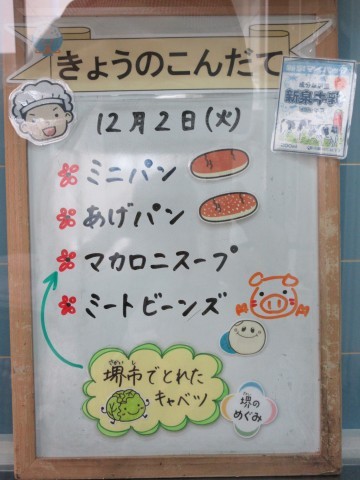 きょうのこんだて
12月2日(火)
新泉牛乳
ミニパン
あげパン
マカロニスープ
ミートビーンズ
さかいし
堺市でとれた
キャベツ
堺の
めぐみ